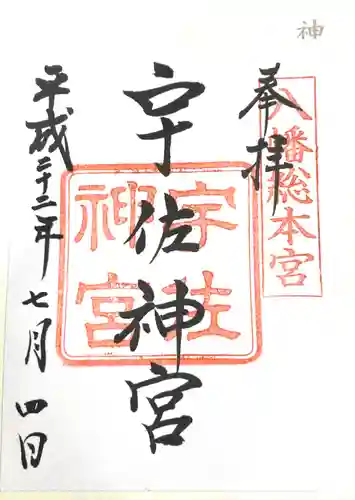 神
奉拝
八幡総本宮
宇佐神宮
宇佐
神宮
平成二十二年七月四日